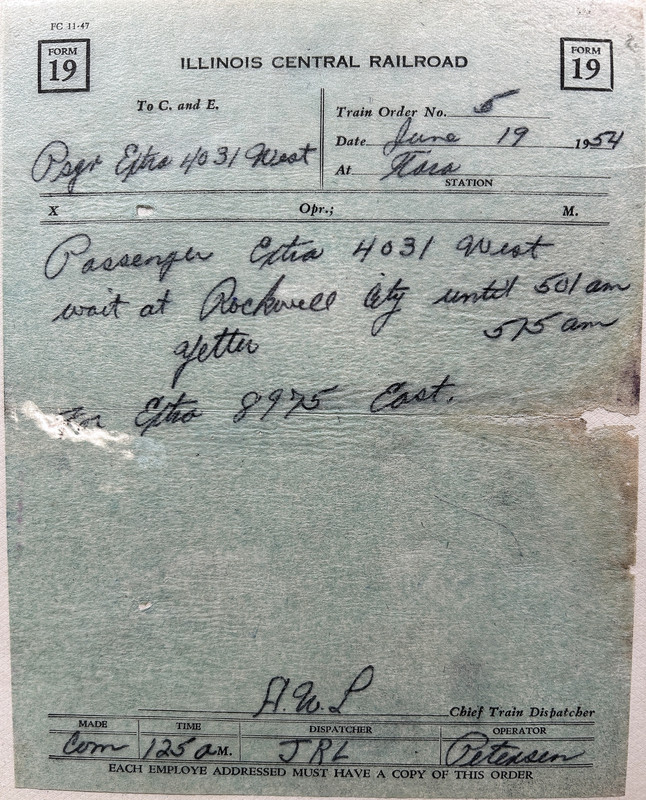 FC 11-47
FORM 19
ILLINOIS CENTRAL RAILROAD
FORM 19
To C. and E.
Psgr Extra 4031 West
Train Order No. 5
Date June 19 1954
At Tara
STATION
X Opr.; M.
Passenger Extra 4031 West
wait at Rockwell City until 501 am
Yetter 515 am
For Extra 8975 East.
A.W.L Chief Train Dispatcher
MADE TIME DISPATCHER OPERATOR
Com 125 a M. JRL Petersen
EACH EMPLOYE ADDRESSED MUST HAVE A COPY OF THIS ORDER